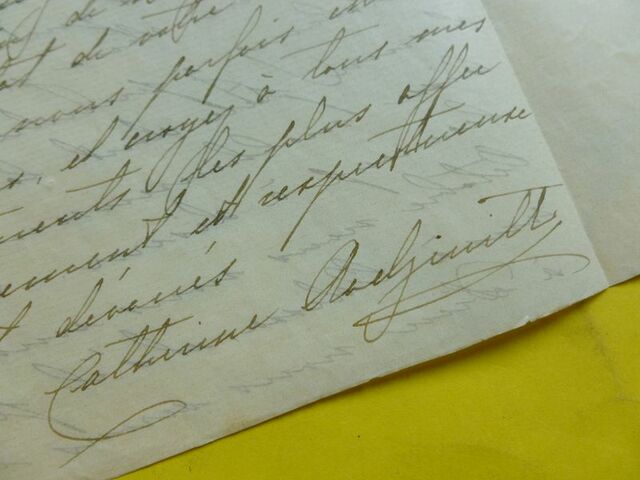 de votre
nous parfois
et croyez à tous mes
ments les plus affec
ement et respectueuse
dévoués
Catherine Radziwill